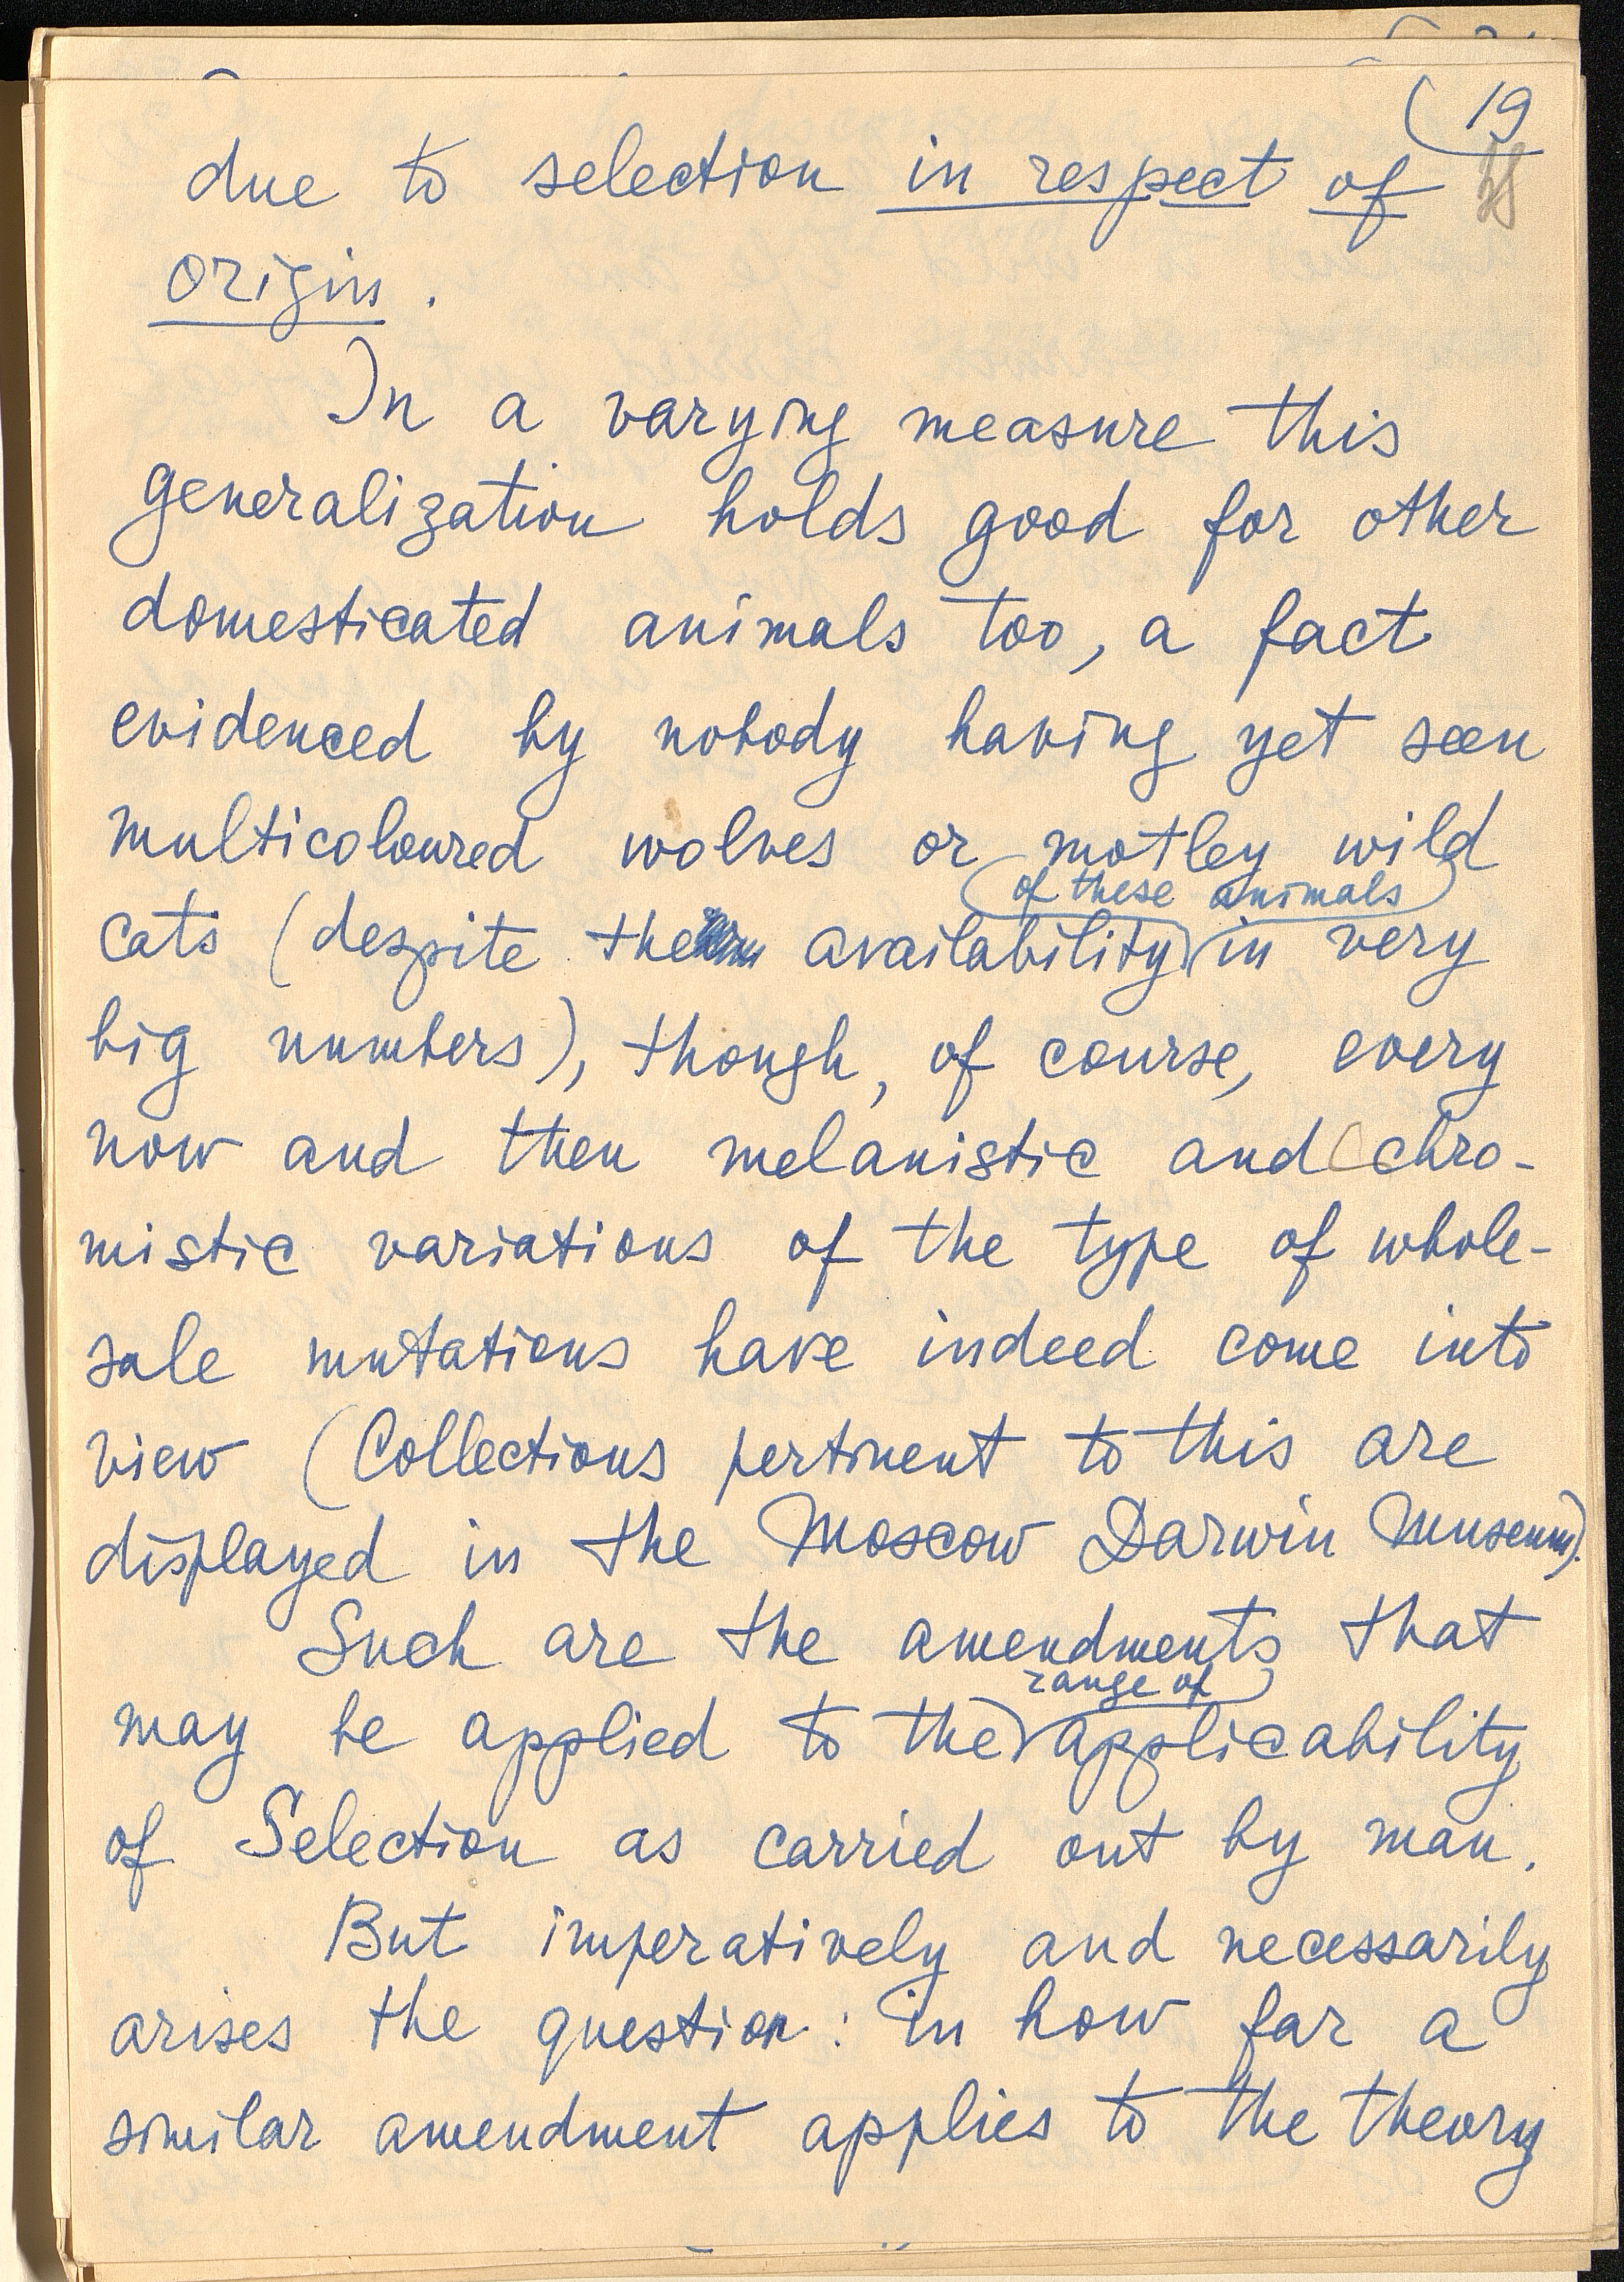 19
due to selection in respect of
origin.
In a varying measure this
generalization holds good for other
domesticated animals too, a fact
evidenced by nobody having yet seen
multicoloured wolves or motley wild
of these animals
cats (despite the availability in very
big numbers), though, of course, every
now and then melanistic and chro-
mistic variations of the type of whole-
sale mutations have indeed come into
view (Collections pertinent to this are
displayed in the Moscow Darwin Museum).
Such are the amendments that
range of
may be applied to the applicability
of Selection as carried out by man.
But imperatively and necessarily
arises the question: in how far a
similar amendment applies to the theory